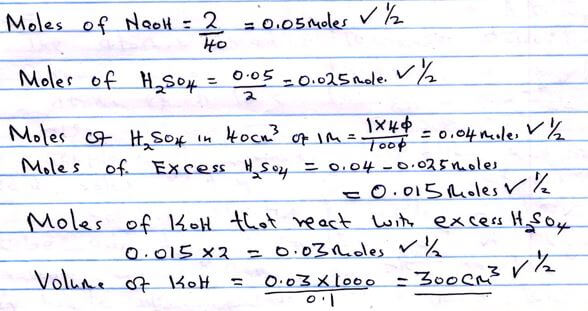 Moles of NaOH = 2/40 = 0.05moles ✓ ½
Moles of H₂SO₄ = 0.05/2 = 0.025mole. ✓ ½
Moles of H₂SO₄ in 40cm³ of 1M = 1×40/1000 = 0.04moles ✓ ½
Moles of. Excess H₂SO₄ = 0.04 - 0.025moles
= 0.015 moles ✓ ½
Moles of KOH that react with excess H₂SO₄
0.015 × 2 = 0.03moles ✓ ½
Volume of KOH = 0.03 × 1000/0.1 = 300cm³ ✓ ½